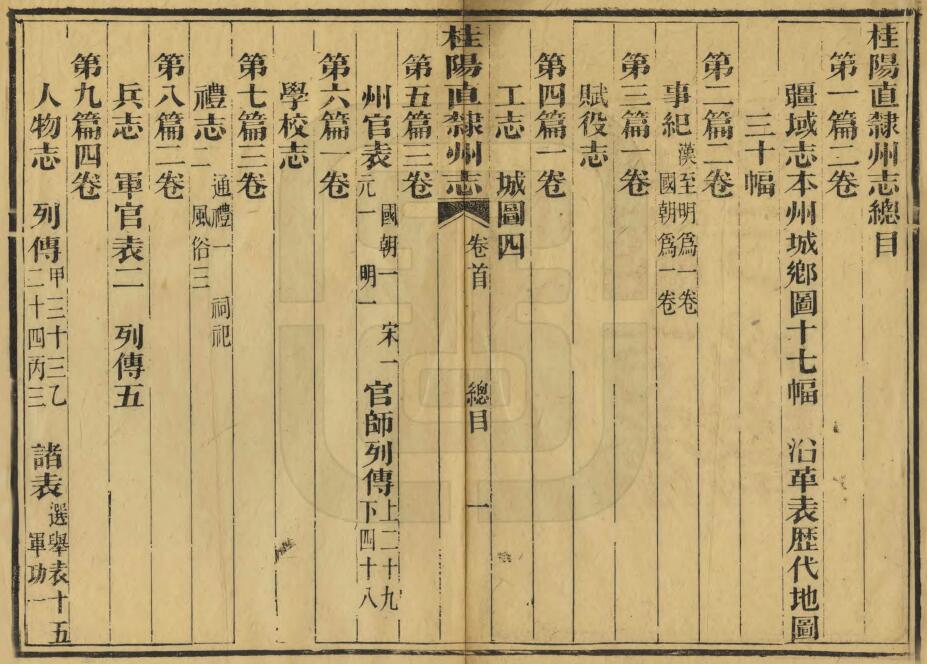 桂陽直隸州志總目
第一篇二卷
疆域志本州城鄉圖十七幅　沿革表歷代地圖
三十幅
第二篇二卷
事紀漢至明爲一卷
國朝爲一卷
第三篇一卷
賦役志
第四篇一卷
工志　城圖四
桂陽直隸州志　卷首　總目　一
第五篇三卷
州官表　國朝一　宋一
元一　明一　官師列傳上二十九
下四十八
第六篇一卷
學校志
第七篇三卷
禮志二　通禮一　祠祀
風俗三
第八篇二卷
兵志　軍官表二　列傳五
第九篇四卷
人物志　列傳甲三十三乙
二十四丙三　諸表選舉表十五
軍功一